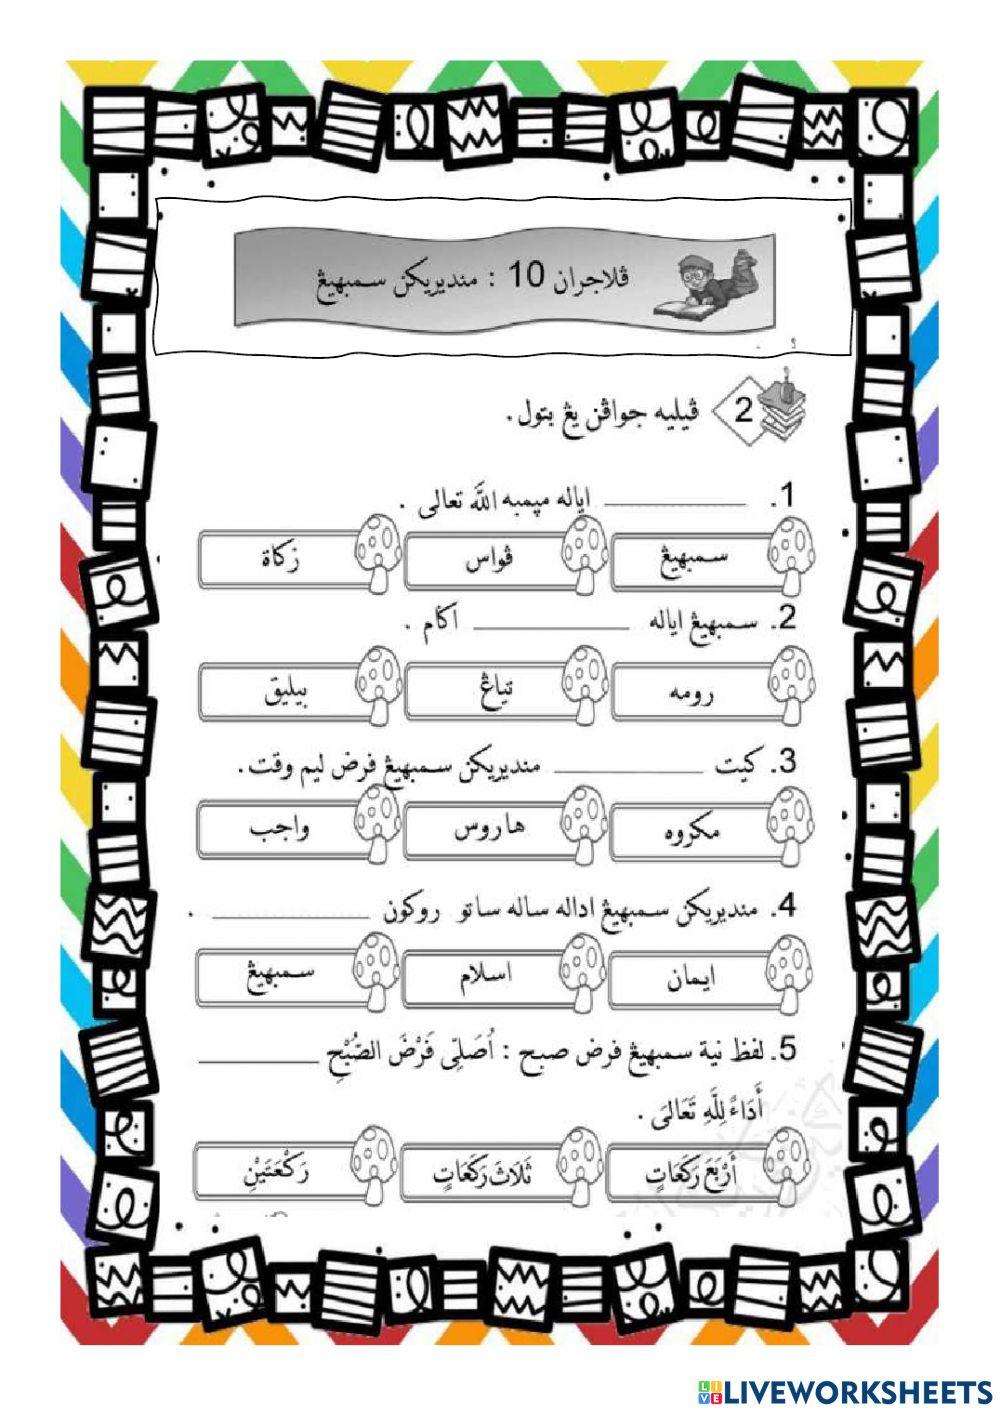 ڤلاجرن 10 : منديريكن سمبهيڠ
2 ڤيليه جواڤن يڠ بتول.
1. ________ اياله مڽمبه اللّٰه تعالى .
سمبهيڠ ڤواس زكاة
2. سمبهيڠ اياله ________ اڬام .
رومه تياڠ بيليق
3. كيت ________ منديريكن سمبهيڠ فرض ليم وقت.
مكروه هاروس واجب
4. منديريكن سمبهيڠ اداله ساله ساتو روكون ________ .
ايمان اسلام سمبهيڠ
5. لفظ نية سمبهيڠ فرض صبح : أُصَلِّى فَرْضَ الصُّبْحِ ________
أَدَاءً لِلَّهِ تَعَالَى .
أَرْبَعَ رَكَعَاتٍ ثَلَاثَ رَكَعَاتٍ رَكْعَتَيْنِ
LIVE LIVEWORKSHEETS